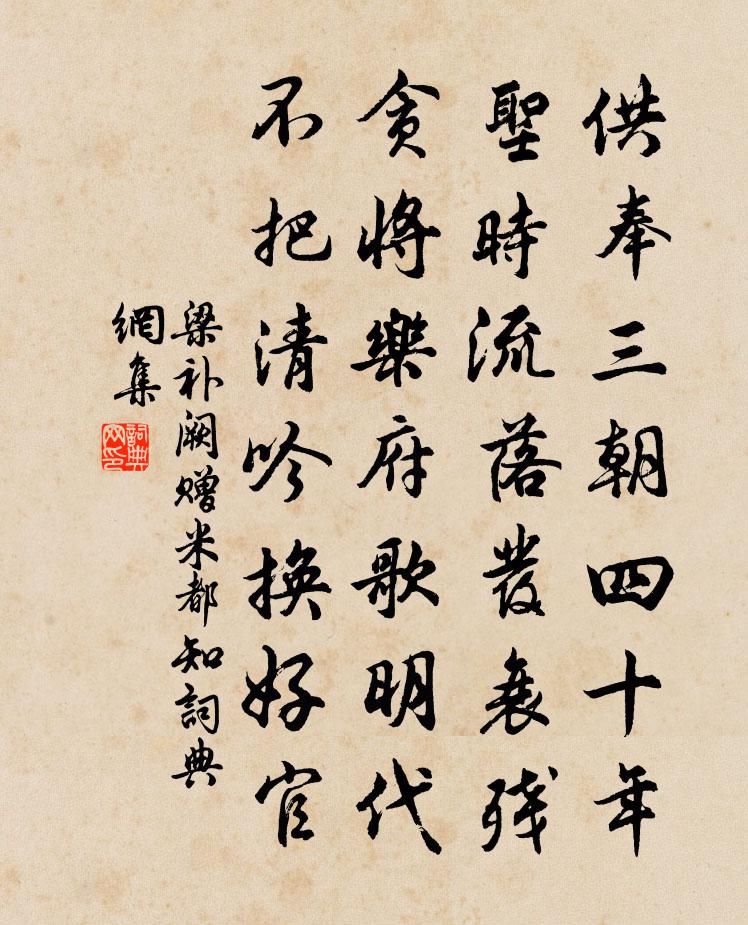 供奉三朝四十年
聖時流落發衰殘
貪將樂府歌明代
不把清吟換好官
梁补阙赠米都知詞典
網集
詞典
网印